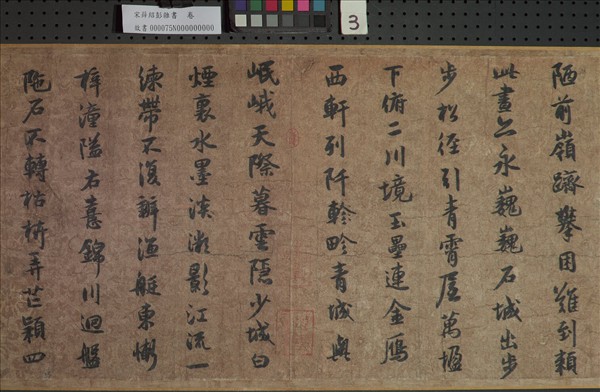 宋薛紹彭雜書 卷
故書000075N000000000
3
陋前嶺躋攀困難到頼
此畫亦永巍巍石城出步
步松徑引青霄居萬堰
下俯二川境玉壘連金鴈
西軒列阡畛青城與
岷峨天際暮雲隱少城白
煙裏水墨淡漪影江流一
練帶不復辭漁艇東慚
梓潼隘右喜錦川迴盤
陁石不轉枯枿弄芒穎四